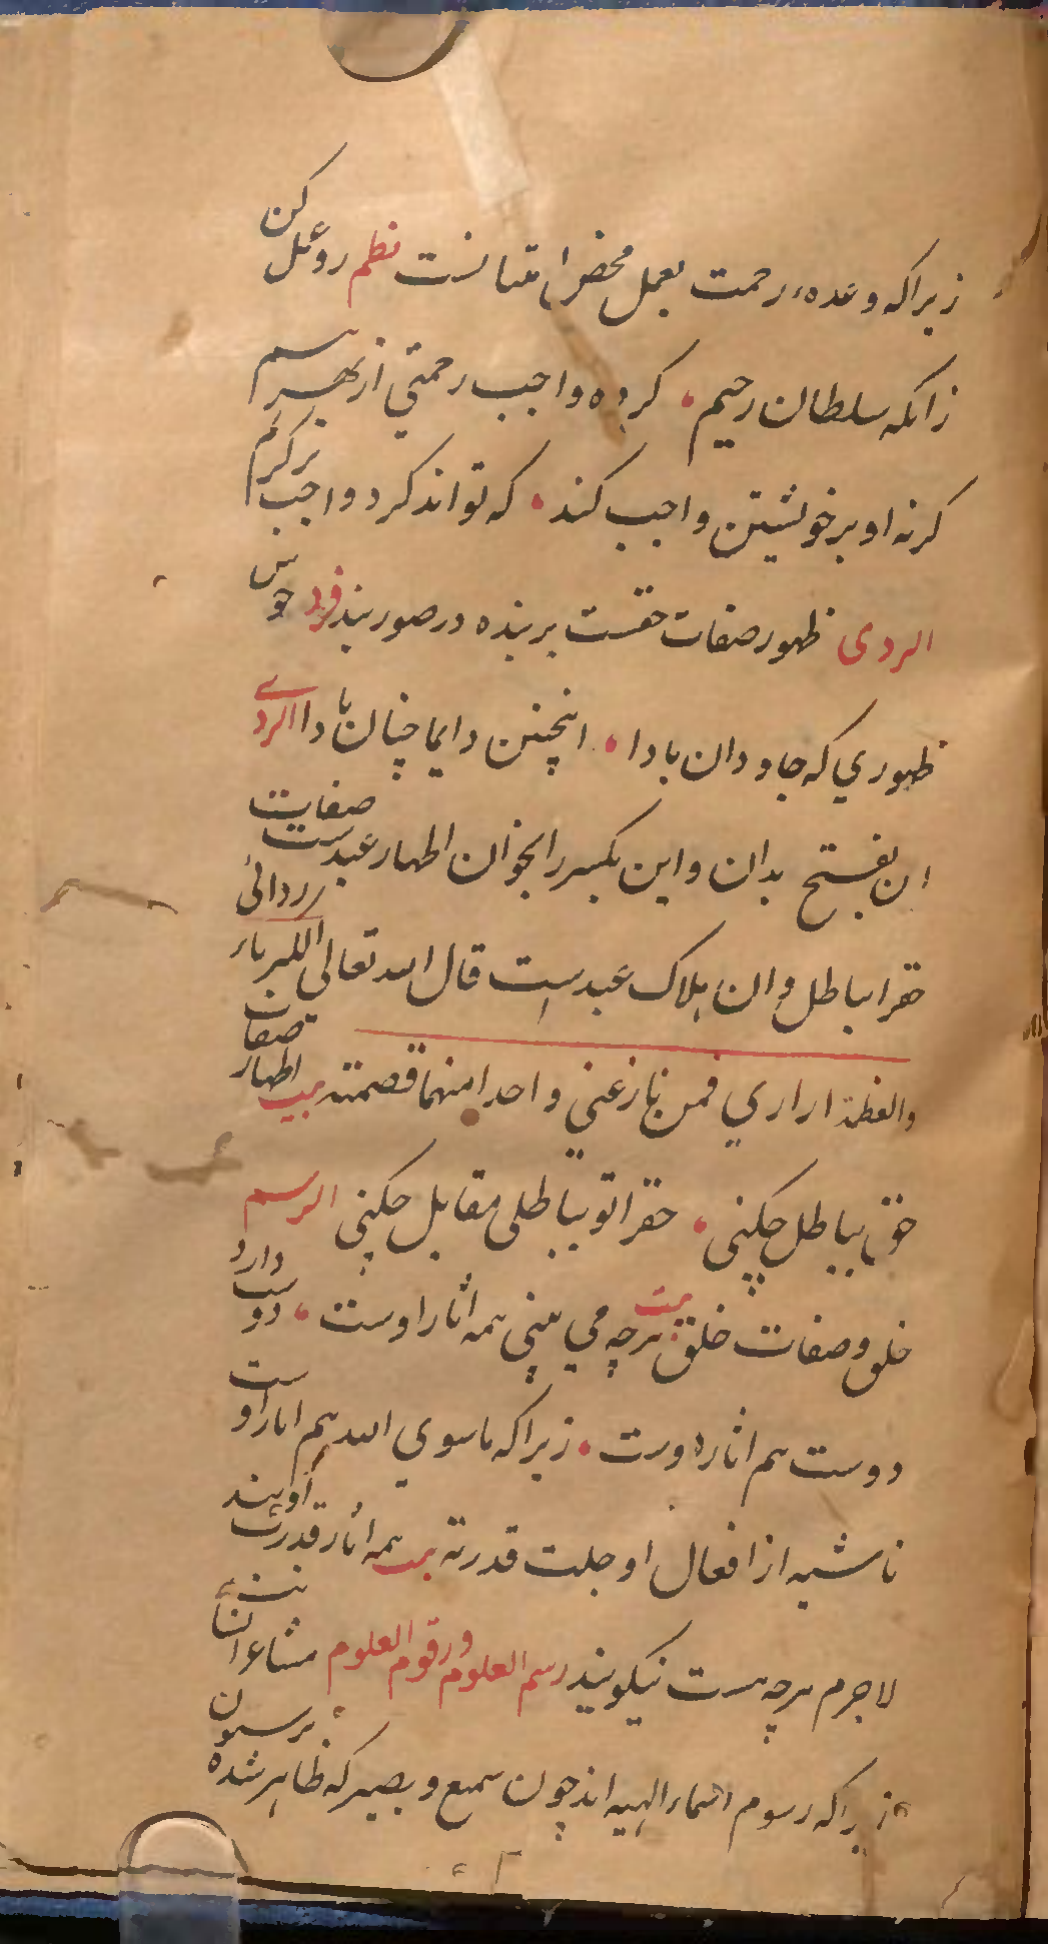 زیراکه وعده رحمت بعمل محض امتنانست نظم رو عمل کن
زانکه سلطان رحیم • کرده واجب رحمتی از بهر سیم
کرنه او بر خویشتن واجب کند • که تواند کرد واجب بر کرم
الردی ظهور صفات حقست بر بنده در صور بند فرد خوش
ظهوری که جاودان بادا • اینچنین دایما چنان بادا الردی
ان بفتح بدان و این بکسر را بخوان اظهار عبدست صفات
حقرا بباطل و ان هلاک عبدست قال الله تعالی الکبریاء ردائی
والعظمة ازاری فمن نازعنی واحدا منهما قصمته بیت اظهار صفات
حق بباطل چکنی • حقرا تو بباطلی مقابل چکنی الرسم
خلق و صفات خلق بیت هرچه می بینی همه اثار اوست • دوست دارد
دوست هم اثار دوست • زیراکه ماسوی الله هم اثار اوست
ناشیه از افعال او جلت قدرته بیت همه اثار قدرت اویند
لاجرم هرچه هست نیکویند رسم العلوم و رقوم العلوم مشاعر انسانیت
زیراکه رسوم اسماء الهیه اند چون سمیع و بصیر که ظاهر شده